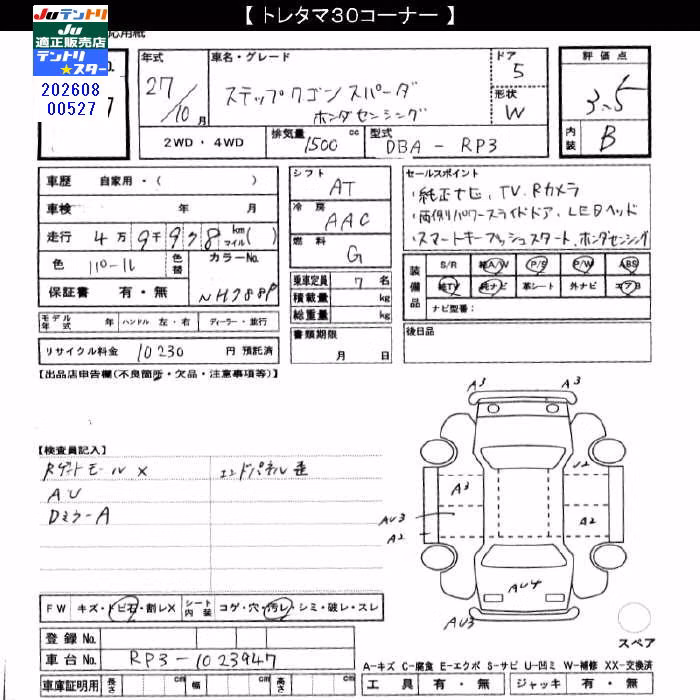 【 トレタマ30コーナー 】
Juテントリ
Ju
適正販売店
テントリ
★スター
202608
00527
応用紙
No.
7
年式
27/10 月
車名・グレード
ステップワゴン スパーダ
ホンダセンシング
ドア
5
形状
W
評価点
3.5
内装
B
2WD・4WD
排気量 1500 cc
型式 DBA-RP3
車歴 自家用・( )
車検 年 月
走行 4万9千978 km マイル( )
色
色替
カラーNo.
NH788P
保証書 有・無
シフト
AT
冷房
AAC
燃料
G
乗車定員 7 名
積載量 kg
総重量 kg
書類期限
月 日
セールスポイント
・純正ナビ、TV、Rカメラ
・両側パワースライドドア、LEDヘッド
・スマートキープッシュスタート、ホンダセンシング
装備品
S/R 純A/W P/S P/W ABS
純TV 純ナビ 革シート 外ナビ エアB
ナビ型番:
後日品
モデル年式 年 ハンドル 左・右 ディーラー・並行
リサイクル料金 10230 円 預託済
【出品店申告欄(不良箇所・欠品・注意事項等)】
【検査員記入】
Rゲートモール X
エンドパネル
AU
Dミラ-A
A3
A3
A3
U2
AU3
A2
A2
AU4
AU3
スペア
FW キズ・トビ石・割レX
シート内装 コゲ・穴・汚レ・シミ・破レ・スレ
登録No.
車台No. RP3-1023947
車庫証明用 長さ cm 幅 cm 高さ cm
A-キズ C-腐食 E-エクボ S-サビ U-凹ミ W-補修 XX-交換済
工具 有・無 ジャッキ 有・無